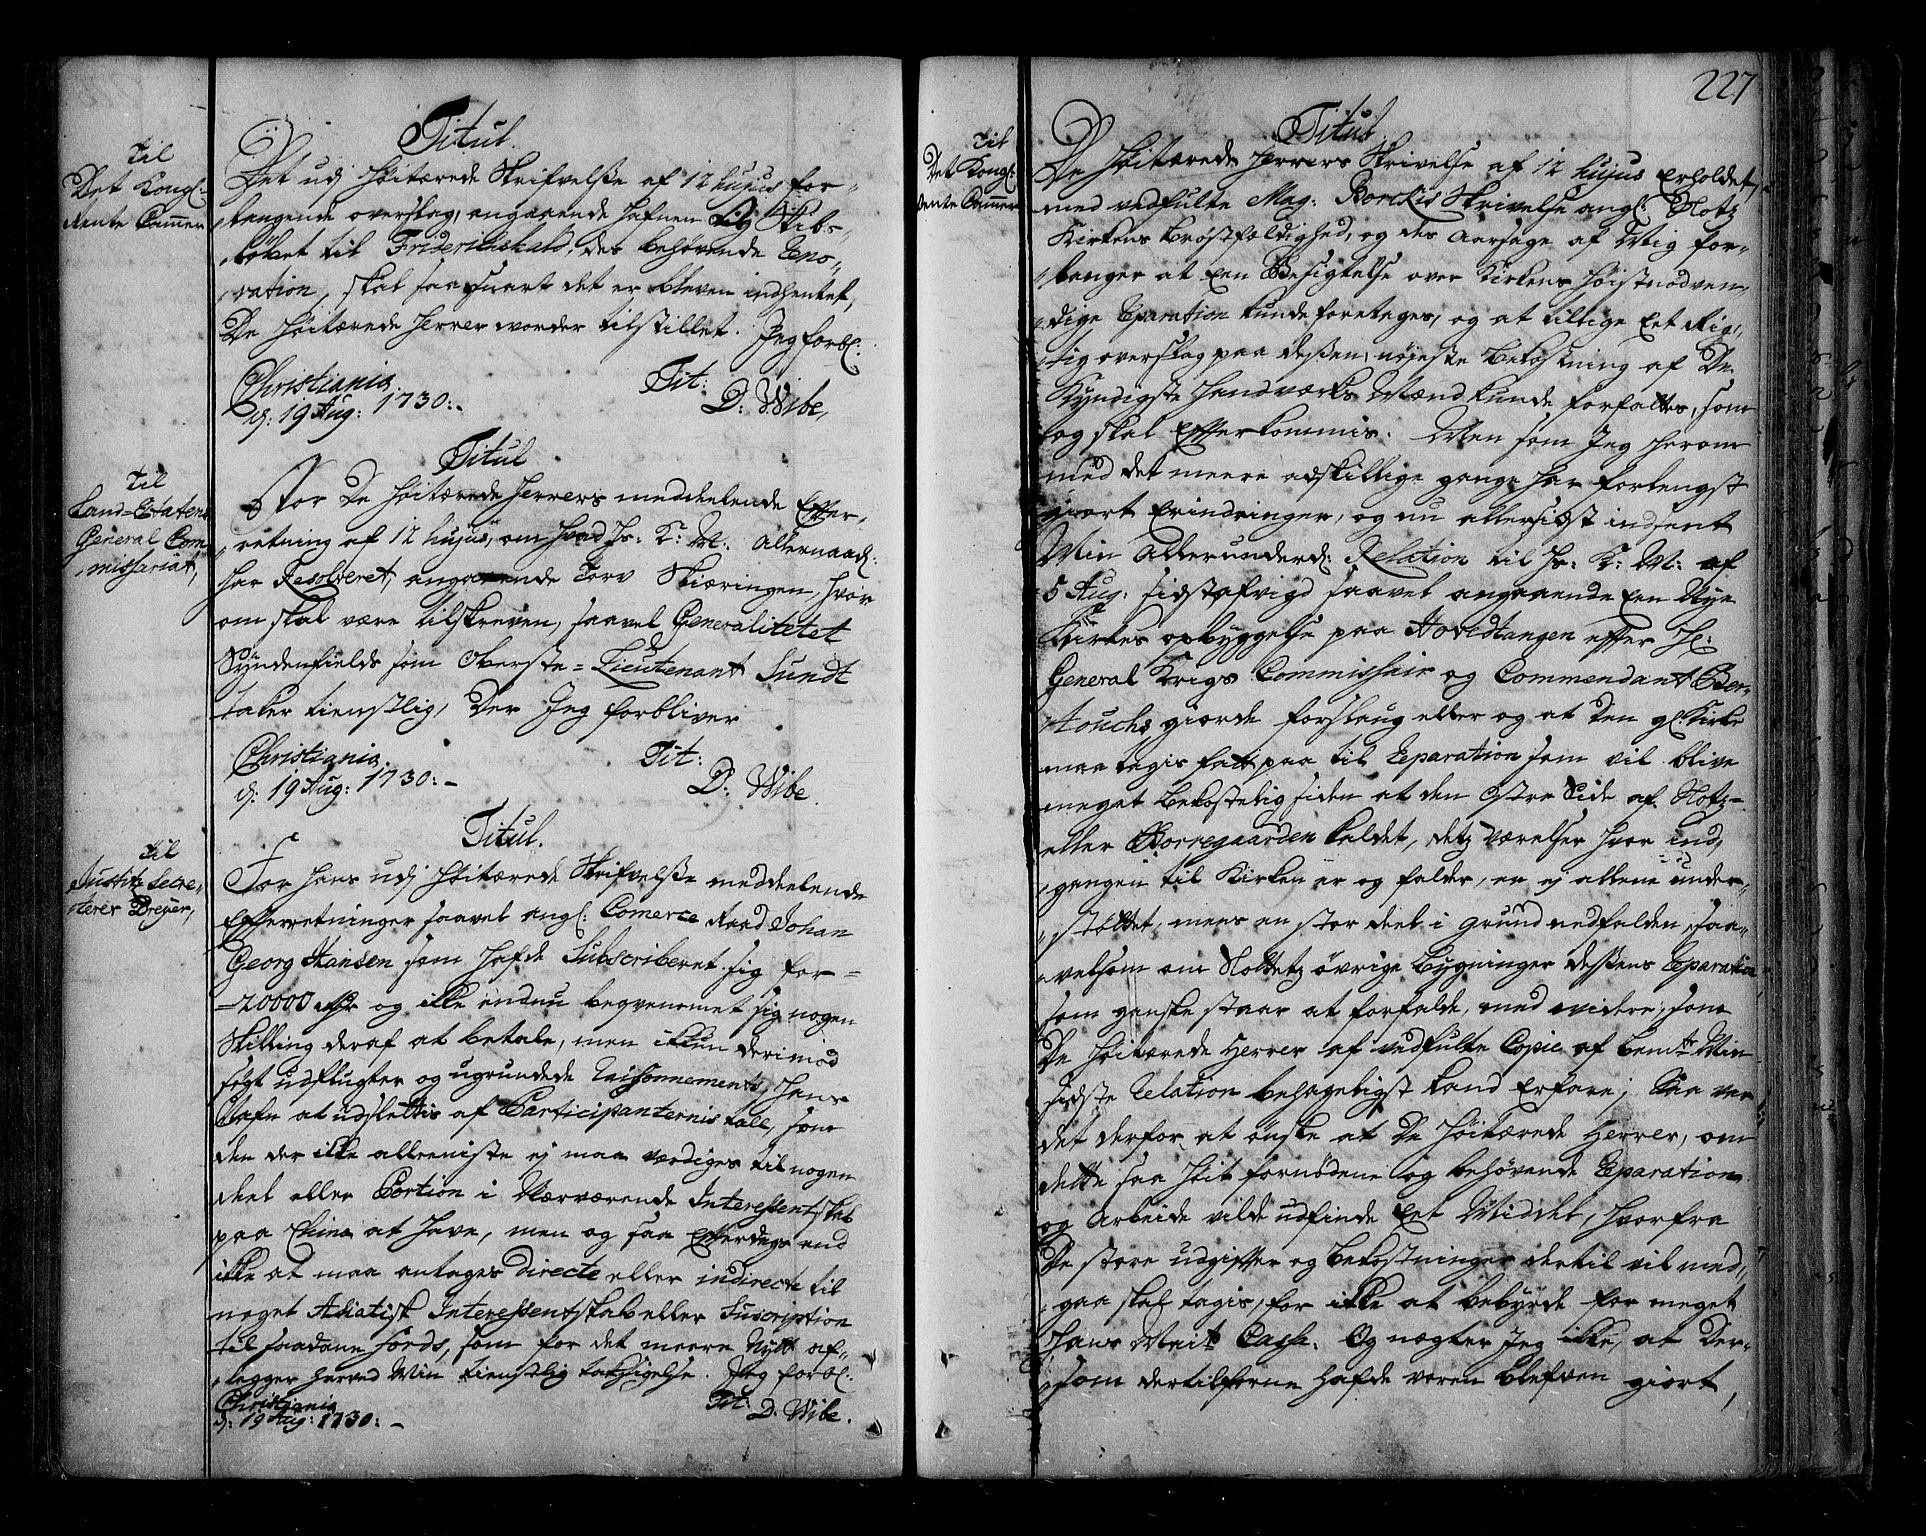 Til
Det Kongl:
Rente Cammer
Titul.
Det udj Høitærede Skrifvelse af 12 hujus for-
langende overslag, angaaende Hafnen og Skibs-
løbet til Friderichshald, des behøvende Reno-
vation, skal saa snart det er bleven indhentet,
De Høitærede Herrer worder tilstillet. Jeg forbl:
Christiania
d: 19 Aug: 1730.
Tit:
D: Wibe,
Til
Land-Etatens
General Com-
missariat,
Titul
For De Høitærede Herrers meddeelende Effter-
retning af 12 hujus, om hvad Hs: K: M: Allernaad:
har Resolveret, angaaende Torv Skiæringen, hvor
om skal være tilskreven, saavel Generalitetet
Syndenfields som Oberste-Lieutenant Sundt
taker tienstlig, Der Jeg forbliver
Christiania
d: 19 Aug: 1730:
Tit:
D: Wibe.
til
Justitz Secre-
terer Dreyer,
Titul.
For hans udj Høitærede Skrifvelse meddeelende
Effterretninger saavel angl: Comerce Raad Johan
Georg Hansen som hafde Subscriberet sig for
20000 rdr og ikke endnu beqvemmet sig nogen
Skilling deraf at betale, men ikkun derimod
søgt udflugter og ugrundede Raisonnements, hans
Nafn at udslettis af Participanternis tall, som
den der ikke allereniste ej maa værdiges til nogen
deel eller Portion i Nærværende Interessentskab
paa China at have, men og saa Effterdags end
ikke at maa antages directe eller indirecte til
noget Asiatisk Interessentskab eller Suscription
til saadane Fonds, som for det meere Nytt af-
legger herved Min tienstlig taksigelse. Jeg forbl:
Christiania
d: 19 Aug: 1730:
Tit:
D: Wibe.
227
Til
Det Kongl:
Rente Cammer
Titul.
De Høitærede Herrers Skrivelse af 12 hujus Erholdet,
med vedfulte Mag: Borchis Skrivelse angl: Slotz
Kirkens brøstfældighed, og des Aarsage af Mig for-
langer at Een Besigtelse over Kirkens Høistnødven-
dige Reparation kunde foretages, og at tillige Eet Rig-
tig overslag paa dessen nøjeste bekostning af De
Kyndigste Handværks Mænd kunde forfattes, som
og skal Effterkommis. Men som Jeg herom
med det meere adskillige gange har forlengst
giort Erindringer, og nu allersidst indsent
Min Allerunderd: Relation til Hs: K: M: af
5 Aug: sidstafvigd saavel angaaende Een Nye
Kirkes opbyggelse paa Hovedtangen effter Hl:
General Krigs Commissair og Commendant Ber-
touchs giorde forslaug eller og at Den gl: Kirke
maa tagis fatt paa til Reparation som vil blive
meget bekostelig siden at den Ostre Side af Slotz-
eller Borregaarden kaldet, detz Værelser hvor ind-
gangen til Kirken er og falder, er ej allene under-
støttet, mens en stor deel i grund nedfalden, saa-
velsom om Slottetz øvrige bygninger dessens Reparation
som ganske staar at forfalde, med widere, som
De Høitærede Herrer af vedfulte Copie af bemte Min
sidste Relation behageligst kand Erfare; Saa var
det derfor at ønske at De Høitærede Herrer, om
dette saa høit fornødene og behøvende Reparation
og Arbeide vilde udfinde Eet Middel, hvorfra
De store udgiffter og bekostninger dertil vil med-
gaa skal tagis, for ikke at bebyrde for meget
Hans Maits Cassa. Og nægter Jeg ikke, at Der-
som dertilforne hafde voren blefven giort,